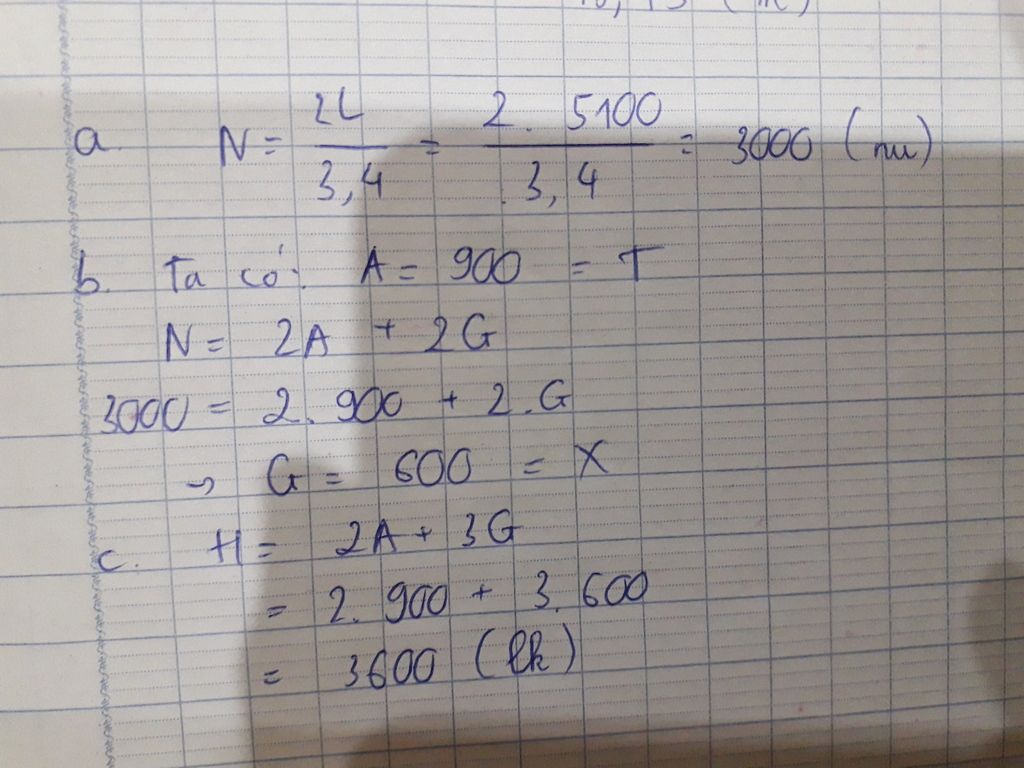 a. N = 2L / 3,4 = 2. 5100 / 3,4 = 3000 (nu)
b. Ta có: A = 900 = T
N = 2A + 2G
3000 = 2.900 + 2.G
→ G = 600 = X
c. H = 2A + 3G
= 2.900 + 3.600
= 3600 (lk)